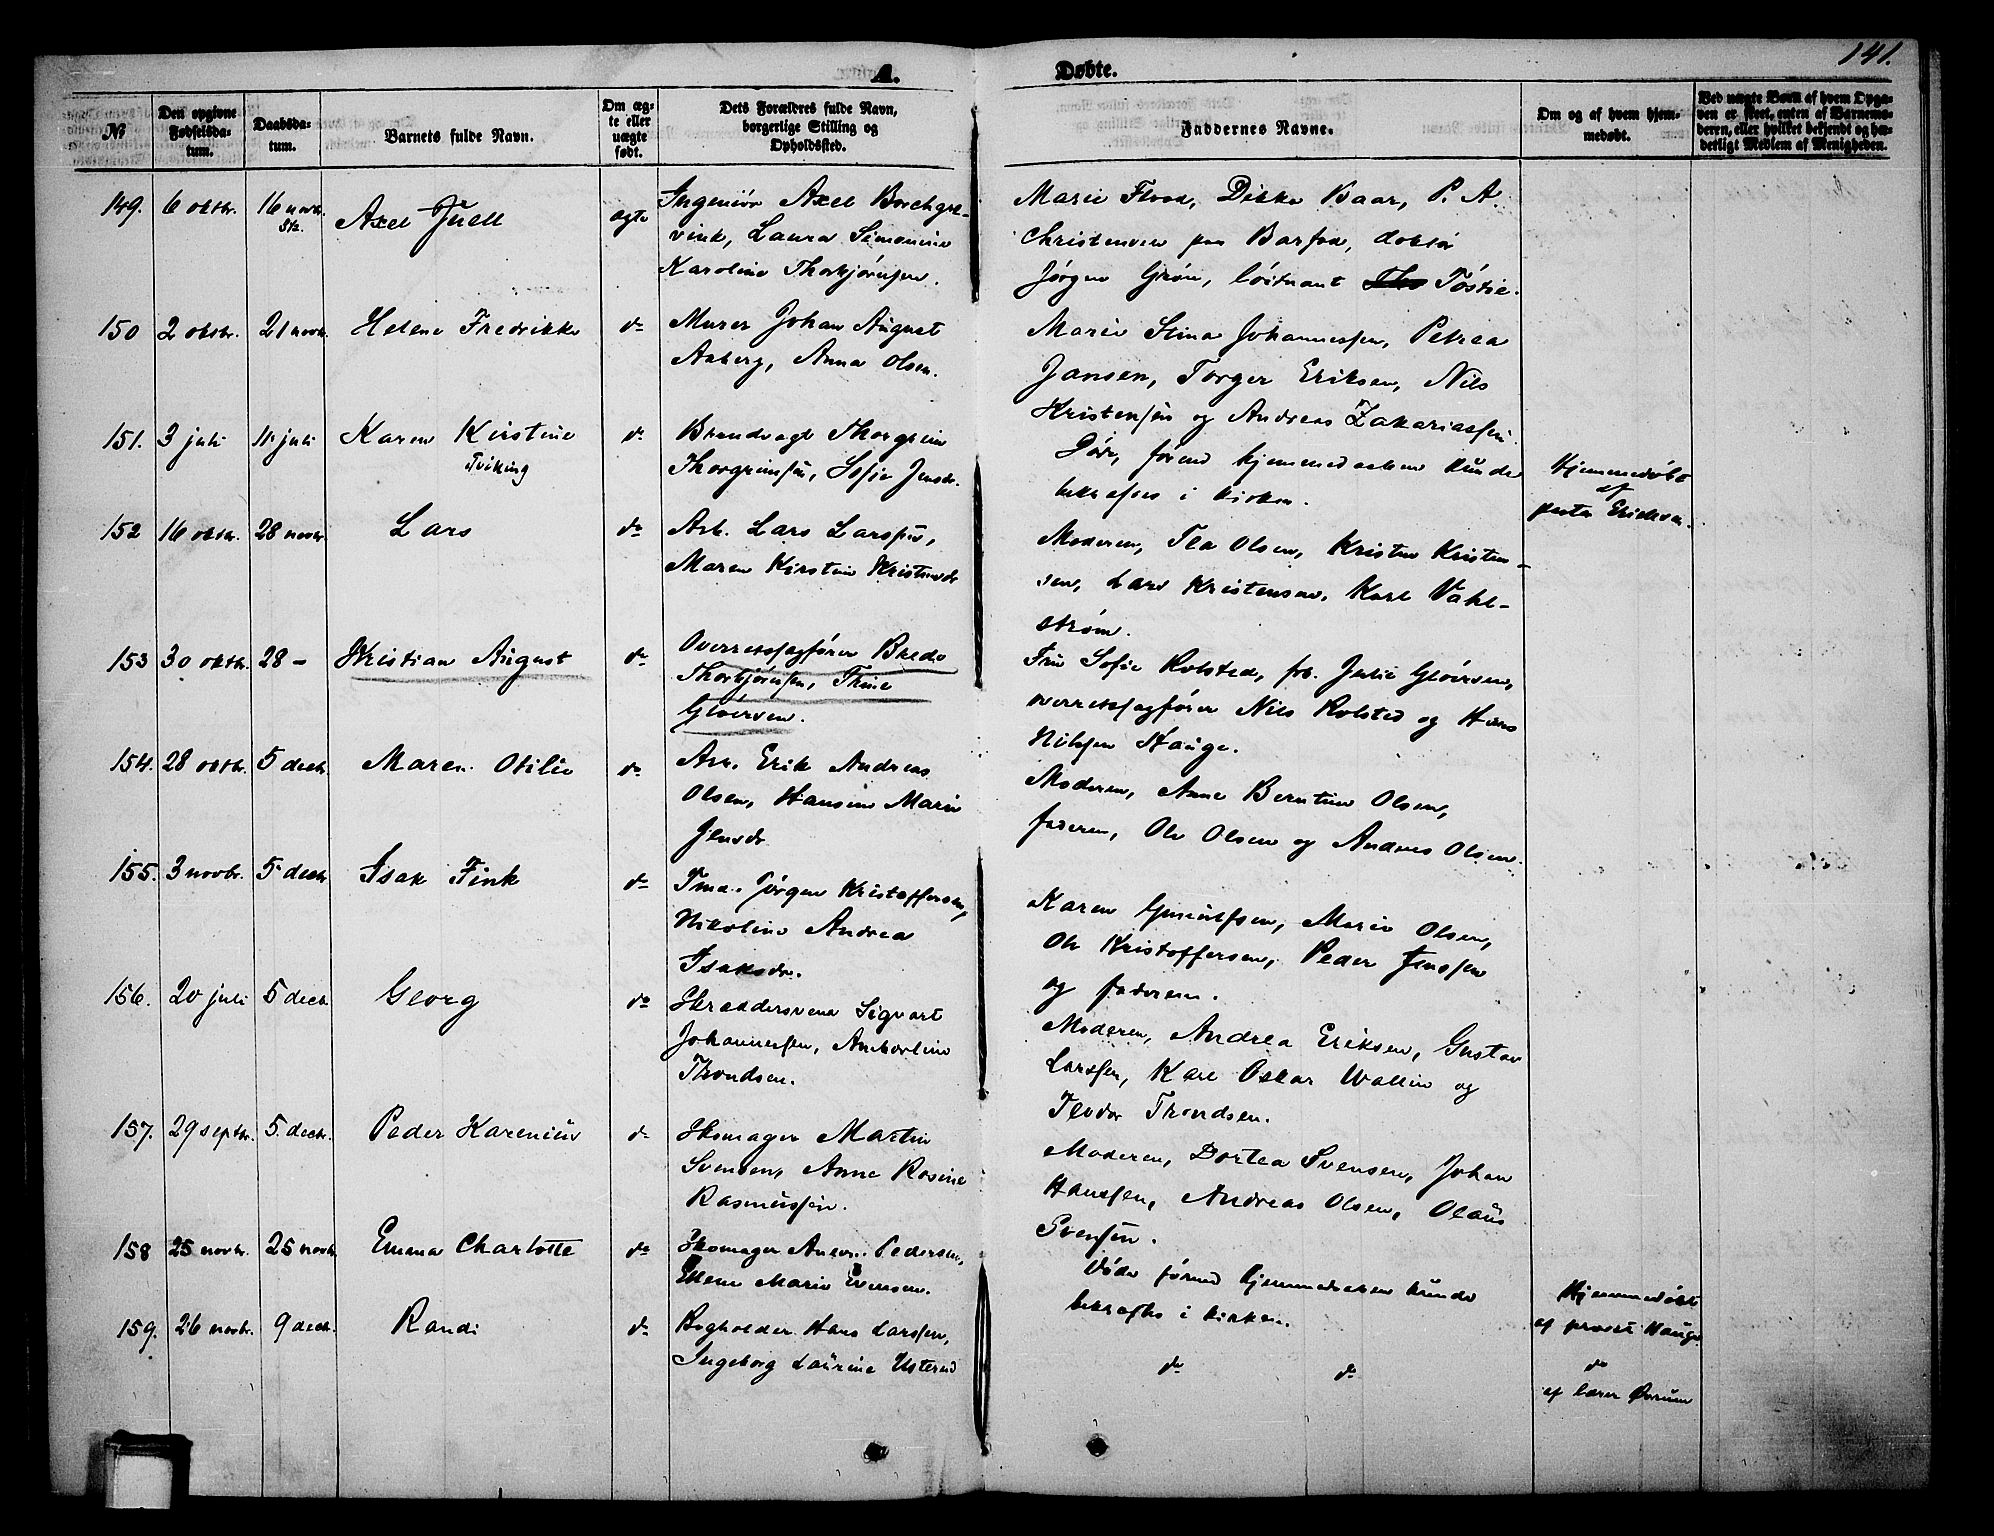 141.
A. Døbte.
No
Den opgivne Fødselsdatum.
Daabsdatum.
Barnets fulde Navn.
Om ægte eller uægte født.
Dets Forældres fulde Navn, borgerlige Stilling og Opholdssted.
Faddernes Navne.
Om og af hvem hjemmedøbt.
Ved uægte Børn af hvem Opgaven er skeet, enten af Barnemoderen, eller hvilket bekjendt og hæderligt Medlem af Menigheden.
149. 6 oktbr. 16 novbr. Axel Juell ægte
Ingeniør Axel Borchgre-
vink, Laura Simonine
Karoline Thorbjørnsen.
Marie Flood, Dikka Baar, P. A.
Christensen paa Barfod, doktor
Jørgen Grøn, löitnant Töstie.
150 2 oktbr. 21 novbr. Helene Fredrikke do
Murer Johan August
Aaberg, Anna Olsen.
Marie Stina Johannessen, Petrea
Jansen, Torger Eriksen, Nils
Kristensen og Andreas Zakariassen.
151. 3 juli 11 juli Karen Kirstine do
Tviking
Brandvagt Thorgrim
Thorgrimsen, Sofie Jensdr.
Döde, førend hjemmedaaben kunde
bekræftes i kirken.
Hjemmedøbt
af
pastor Erichsen.
152 16 oktbr. 28 novbr. Lars do
Arb. Lars Larssen,
Maren Kirstine Kristensdr
Moderen, Tea Olsen, Kristen Kristen-
sen, Lars Kristensen, Karl Vahl-
strøm.
153 30 oktbr. 28 – Kristian August do
Overretssagfører Bredo
Thorbjørnsen, Thine
Gløersen.
Fru Sofie Rolsted, frk. Julie Gløersen,
overretssagfører Nils Rolsted og Hans
Nilssen Hauge.
154. 28 oktbr. 5 decbr. Maren Otilie do
Arb. Erik Andreas
Olsen, Hansine Marie
Jensdr
Moderen, Anne Berntine Olsen,
faderen, Ole Olsen og Andreas Olsen.
155. 3 novbr. 5 decbr Isak Fink do
Tmd. Jørgen Kristoffersen,
Nikoline Andrea
Isaksdr.
Karen Gundersen, Marie Olsen,
Ole Kristoffersen, Peder Jenssen
og faderen.
156. 20 juli 5 decbr. Georg do
Skræddersvend Sigvart
Johannessen, Amborline
Throndsen.
Moderen, Andrea Eriksen, Gustav
Larssen, Karl Oskar Wallin og
Teodor Throndsen.
157. 29 septbr. 5. decbr. Peder Karenius do
Skomager Martin
Svensen, Anne Rosine
Rasmussen.
Moderen, Dortea Svensen, Johan
Hanssen, Andreas Olsen, Olaüs
Svensen.
158 25 novbr. 25 novbr Emma Charlotte do
Skomager Andr. Pedersen,
Ellen Marie Evensen.
Döde førend hjemmedaaben kunde
bekræftes i kirken.
Hjemmedøbt
af provst Hauge
159. 26 novbr. 9 decbr. Randi do
Bogholder Hans Larssen,
Ingeborg Laurine Usterud
do do
do
af lærer Ørsum